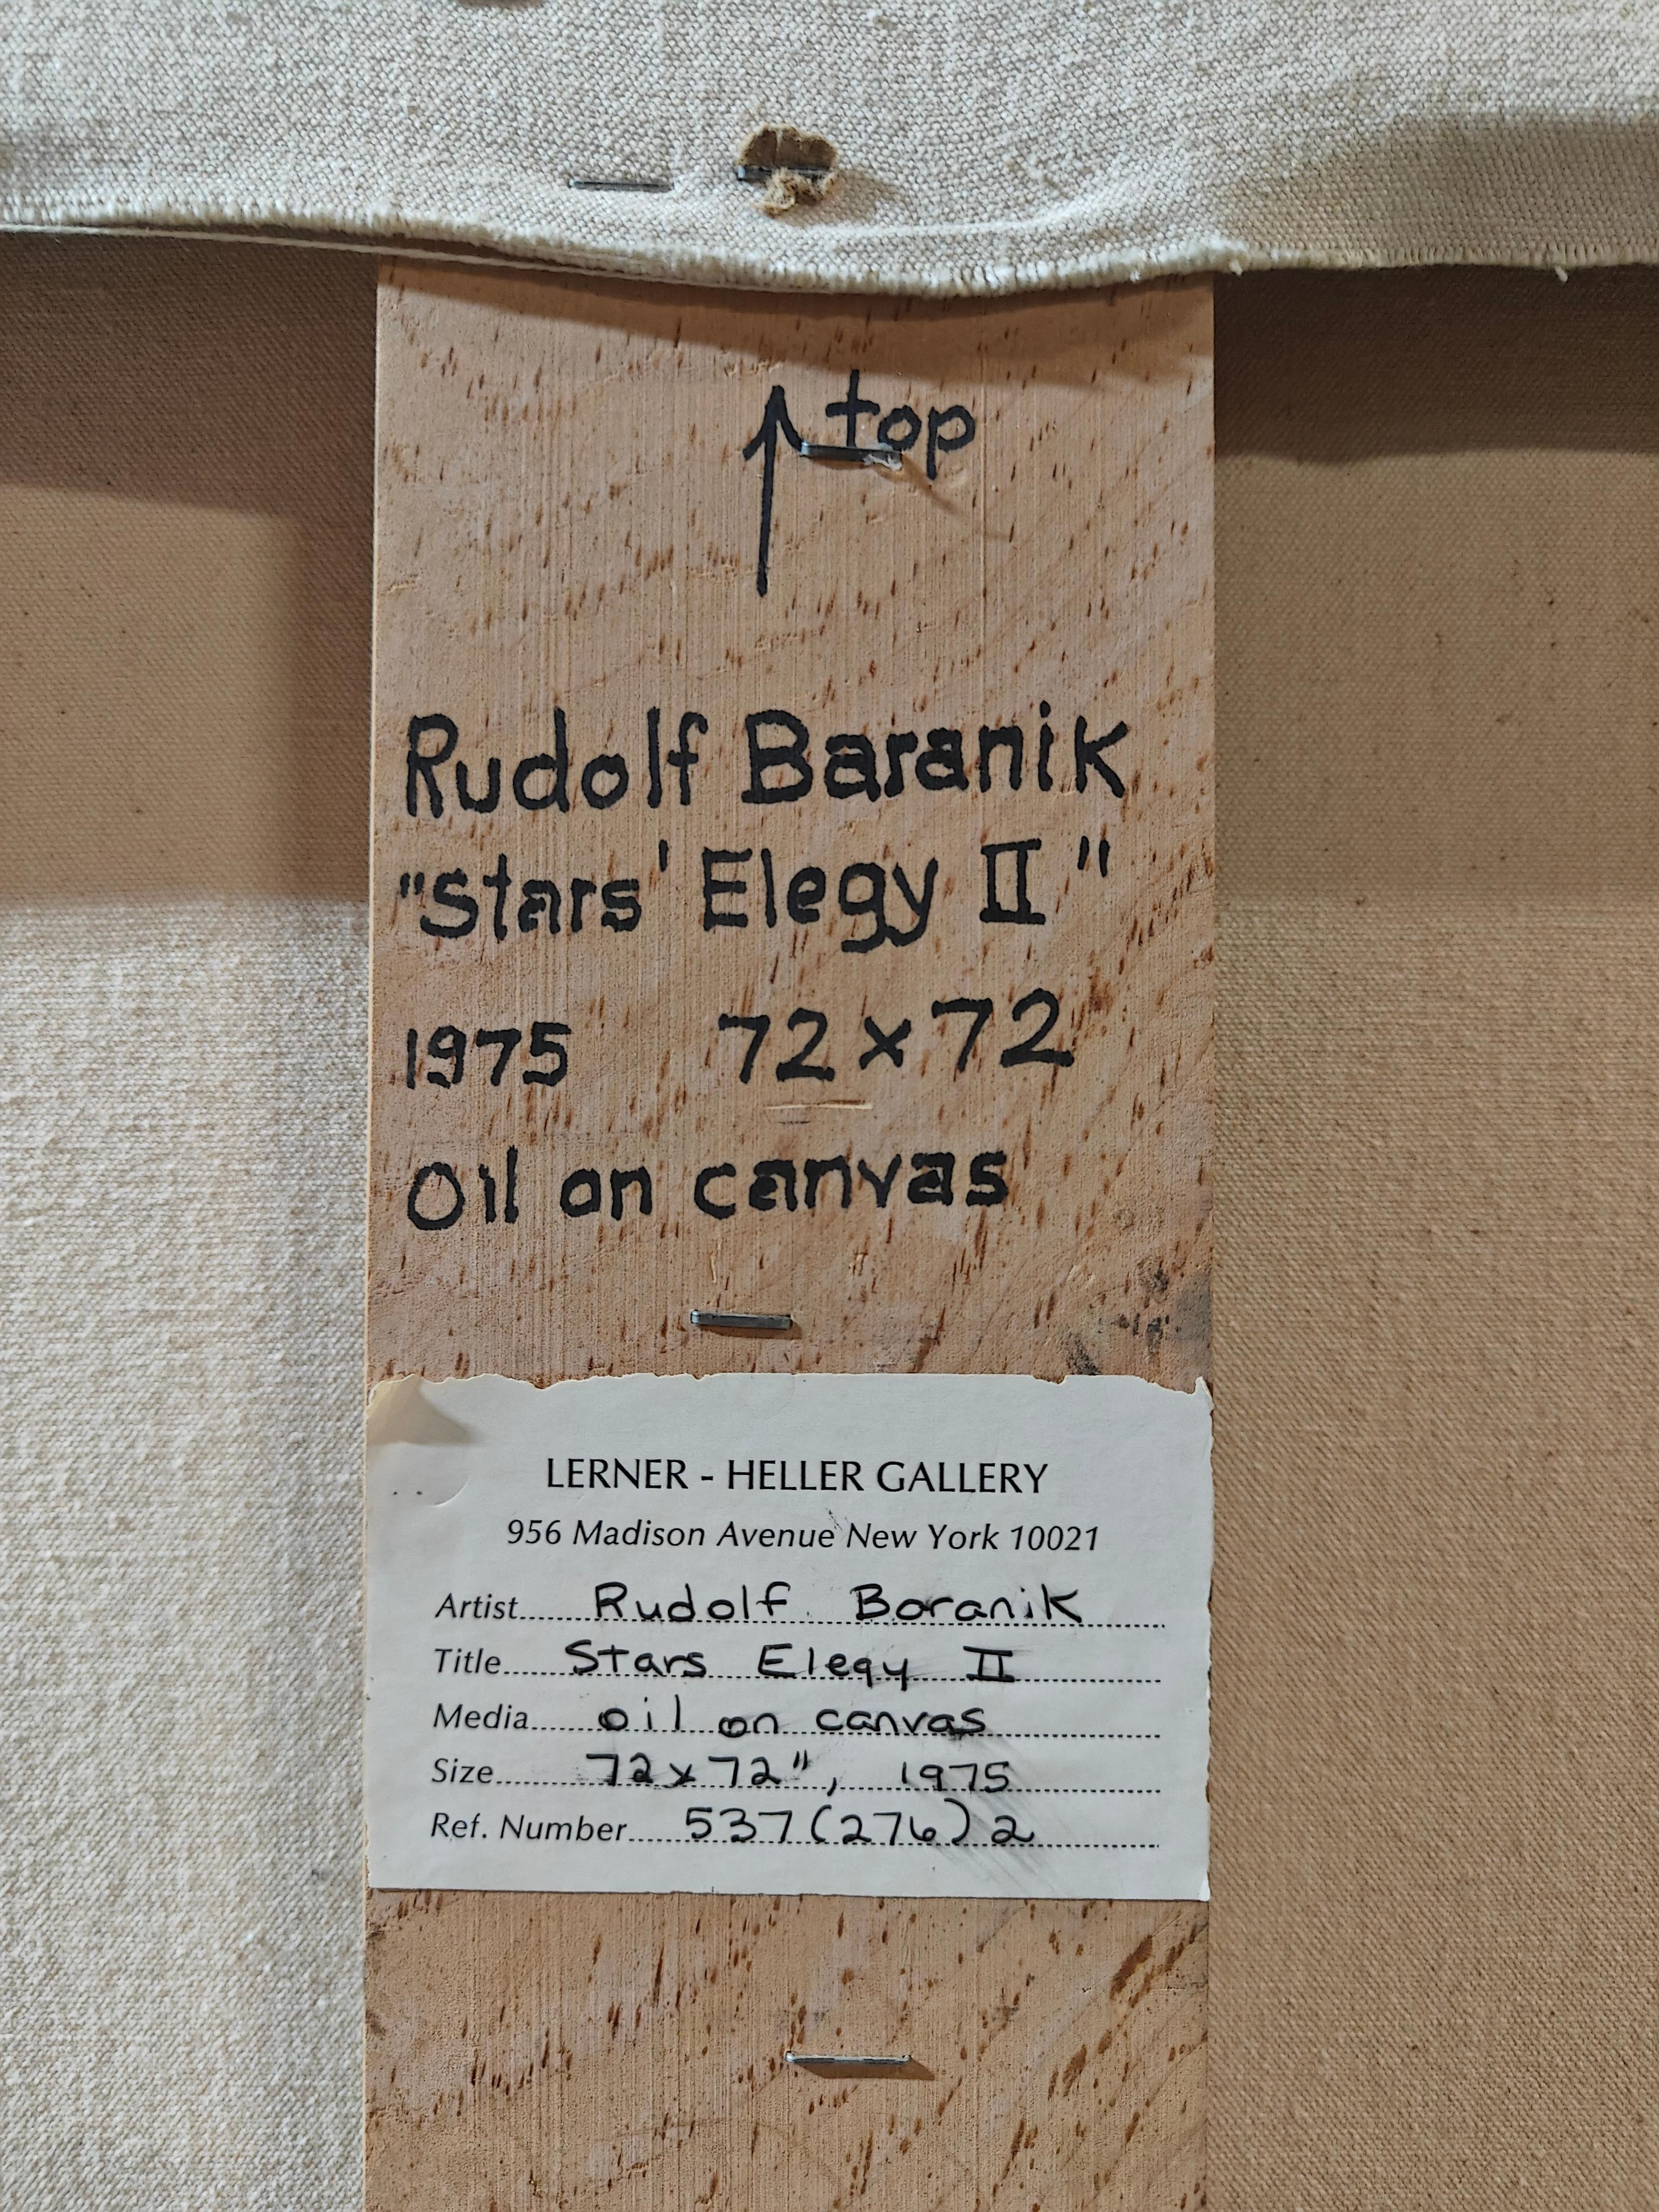 ↑ top
Rudolf Baranik
"Stars' Elegy II"
1975 72 x 72
Oil on canvas
LERNER - HELLER GALLERY
956 Madison Avenue New York 10021
Artist Rudolf Baranik
Title Stars Elegy II
Media oil on canvas
Size 72 x 72", 1975
Ref. Number 537 (276) 2